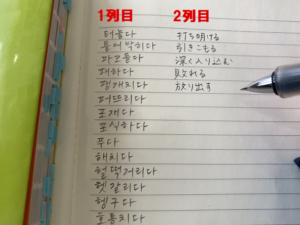 1列目 2列目
터놓다 打ち明ける
틀어박히다 引きこもる
파고들다 深く入り込む
패하다 敗れる
팽개치다 放り出す
퍼뜨리다
포개다
포식하다
푸다
해치다
헐떡거리다
헷갈리다
헹구다
호통치다